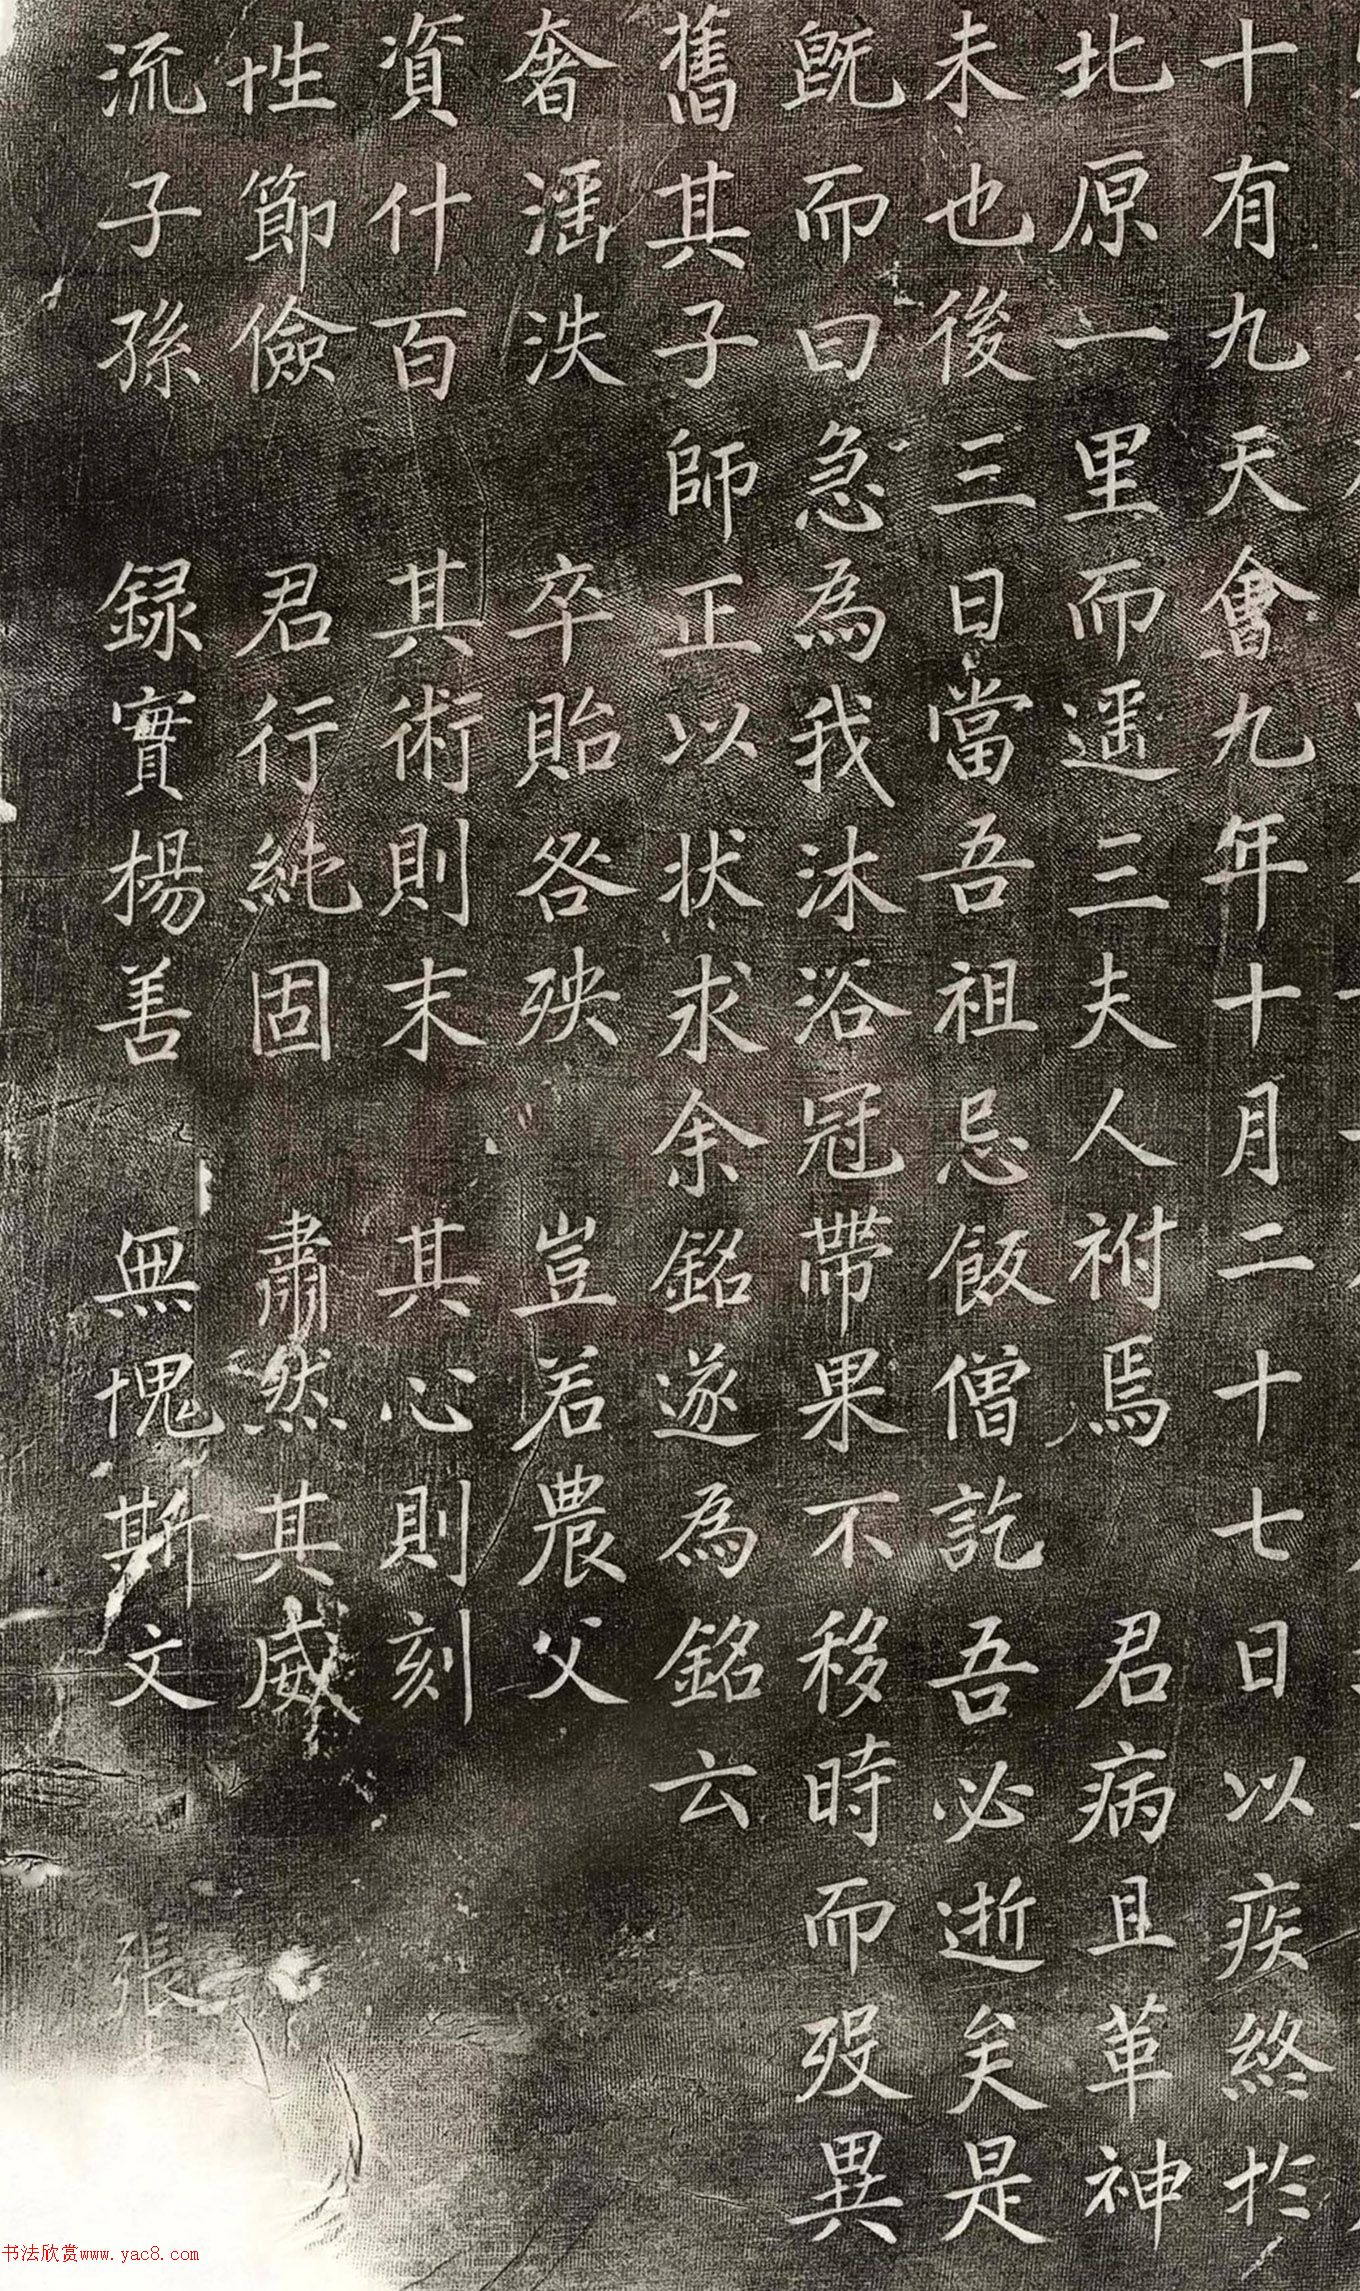 十有九天會九年十月二十七日以疾終於
北原一里而遥三夫人祔焉 君病且革神
未也後三日當吾祖忌飯僧訖 吾必逝矣是
既而曰急為我沐浴冠帶果不移時而歿異
舊其子師正以狀求余銘遂為銘云
奢滛泆 卒貽咎殃 豈若農父
資什百 其術則末 其心則刻
性節儉 君行純固 肅然其威
流子孫 録實楊善 無愧斯文
張
书法欣赏www.yac8.com